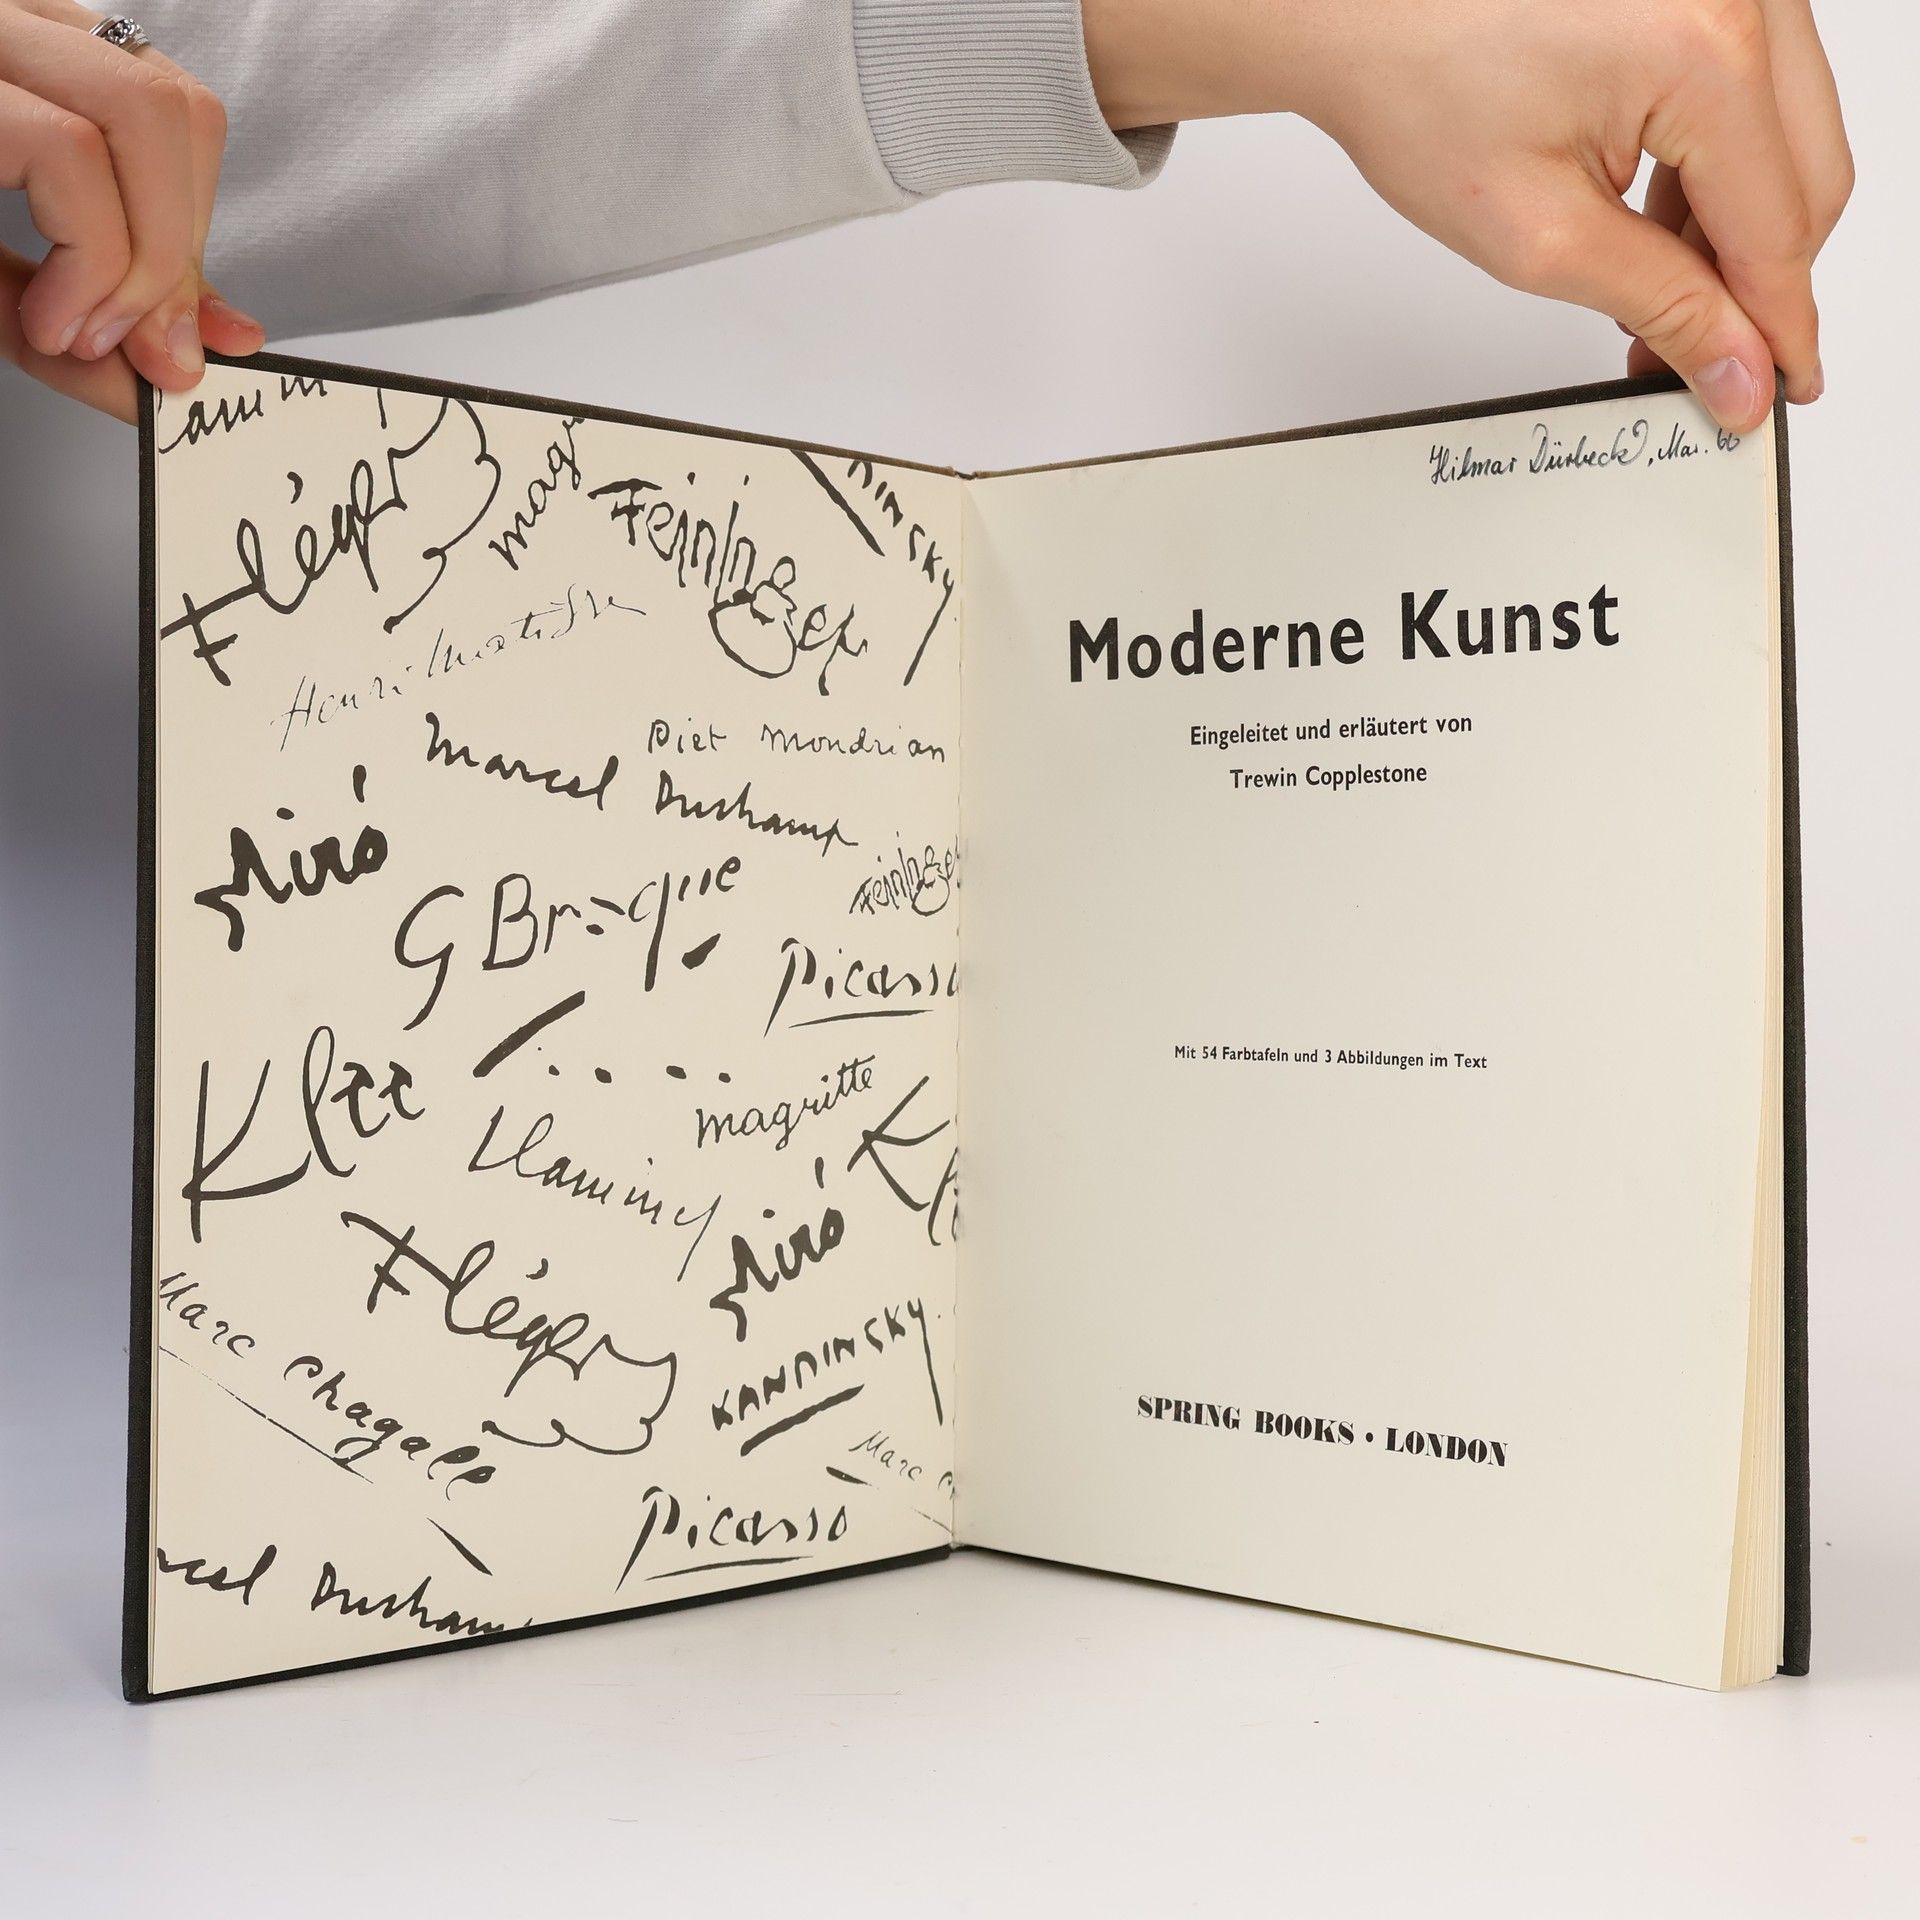 Vlaminc
F Léger
magr
Feininger
NINSKY
Henri Matisse
Piet Mondrian
Marcel Duchamp
Miró
G Braque
Feininger
Picasso
Klee
magritte
Kl
Vlaminck
Miró
F Léger
Marc Chagall
KANDINSKY
Marc Ch
Picasso
rcel Duchamp
Hilmar Dürbeck, Mar. 66
Moderne Kunst
Eingeleitet und erläutert von
Trewin Copplestone
Mit 54 Farbtafeln und 3 Abbildungen im Text
SPRING BOOKS • LONDON